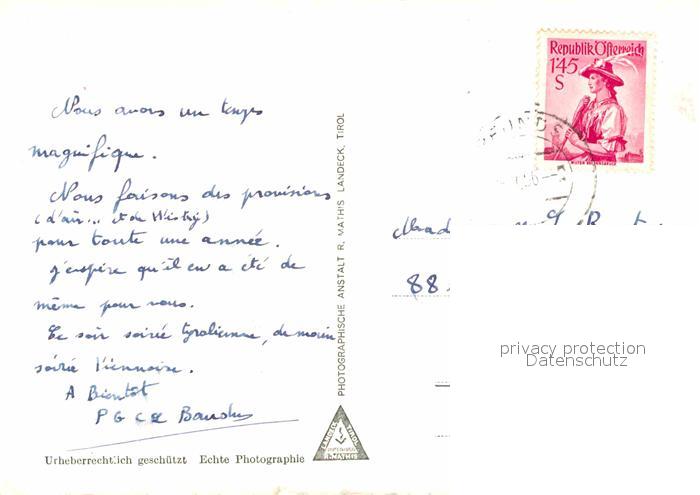 Nous avons un temps
magnifique.
Nous faisons des provisions
(d'air... et de Wisky)
pour toute une année.
J'espère qu'il en a été de
même pour vous.
Ce soir soirée tyrolienne, demain
soirée Viennoise.
A Bientôt
P G C
Urheberrechtlich geschützt Echte Photographie
PHOTOGRAPHISCHE ANSTALT R. MATHIS LANDECK, TIROL
Republik Österreich
1'45
S
88.
privacy protection
Datenschutz